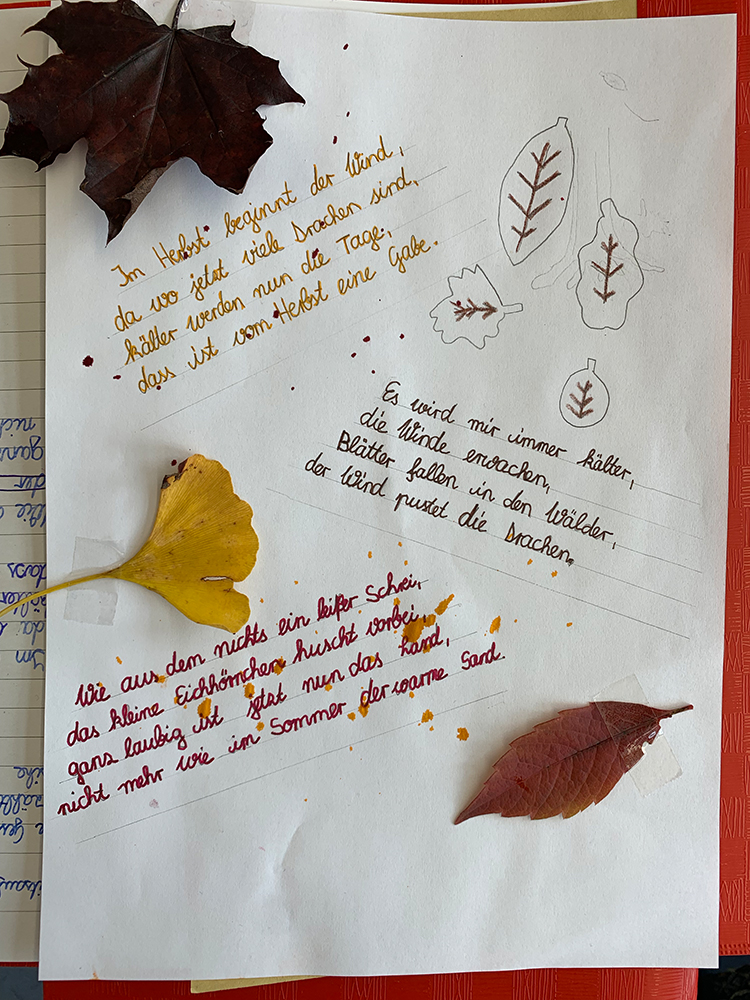 Im Herbst beginnt der Wind,
da wo jetzt viele Drachen sind,
kälter werden nun die Tage,
dass ist vom Herbst eine Gabe.
Es wird mir immer kälter,
die Winde erwachen,
Blätter fallen in den Wälder,
der Wind pustet die Drachen.
Wie aus dem nichts ein leiser Schrei,
das kleine Eichhörnchen huscht vorbei,
ganz laubig ist jetzt nun das Land,
nicht mehr wie im Sommer der warme Sand.